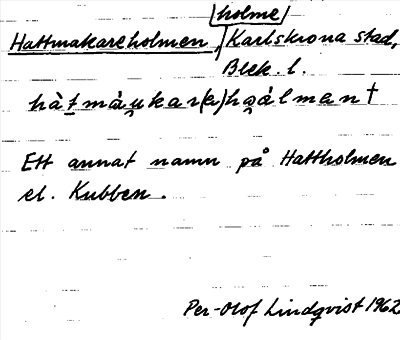 /holme/
Hattmakareholmen, Karlskrona stad,
Blek. l.
hàt màu̯kar(a)ho̯álmen †
Ett annat namn på Hattholmen
el. Kubben.
Per-Olof Lindqvist 1962